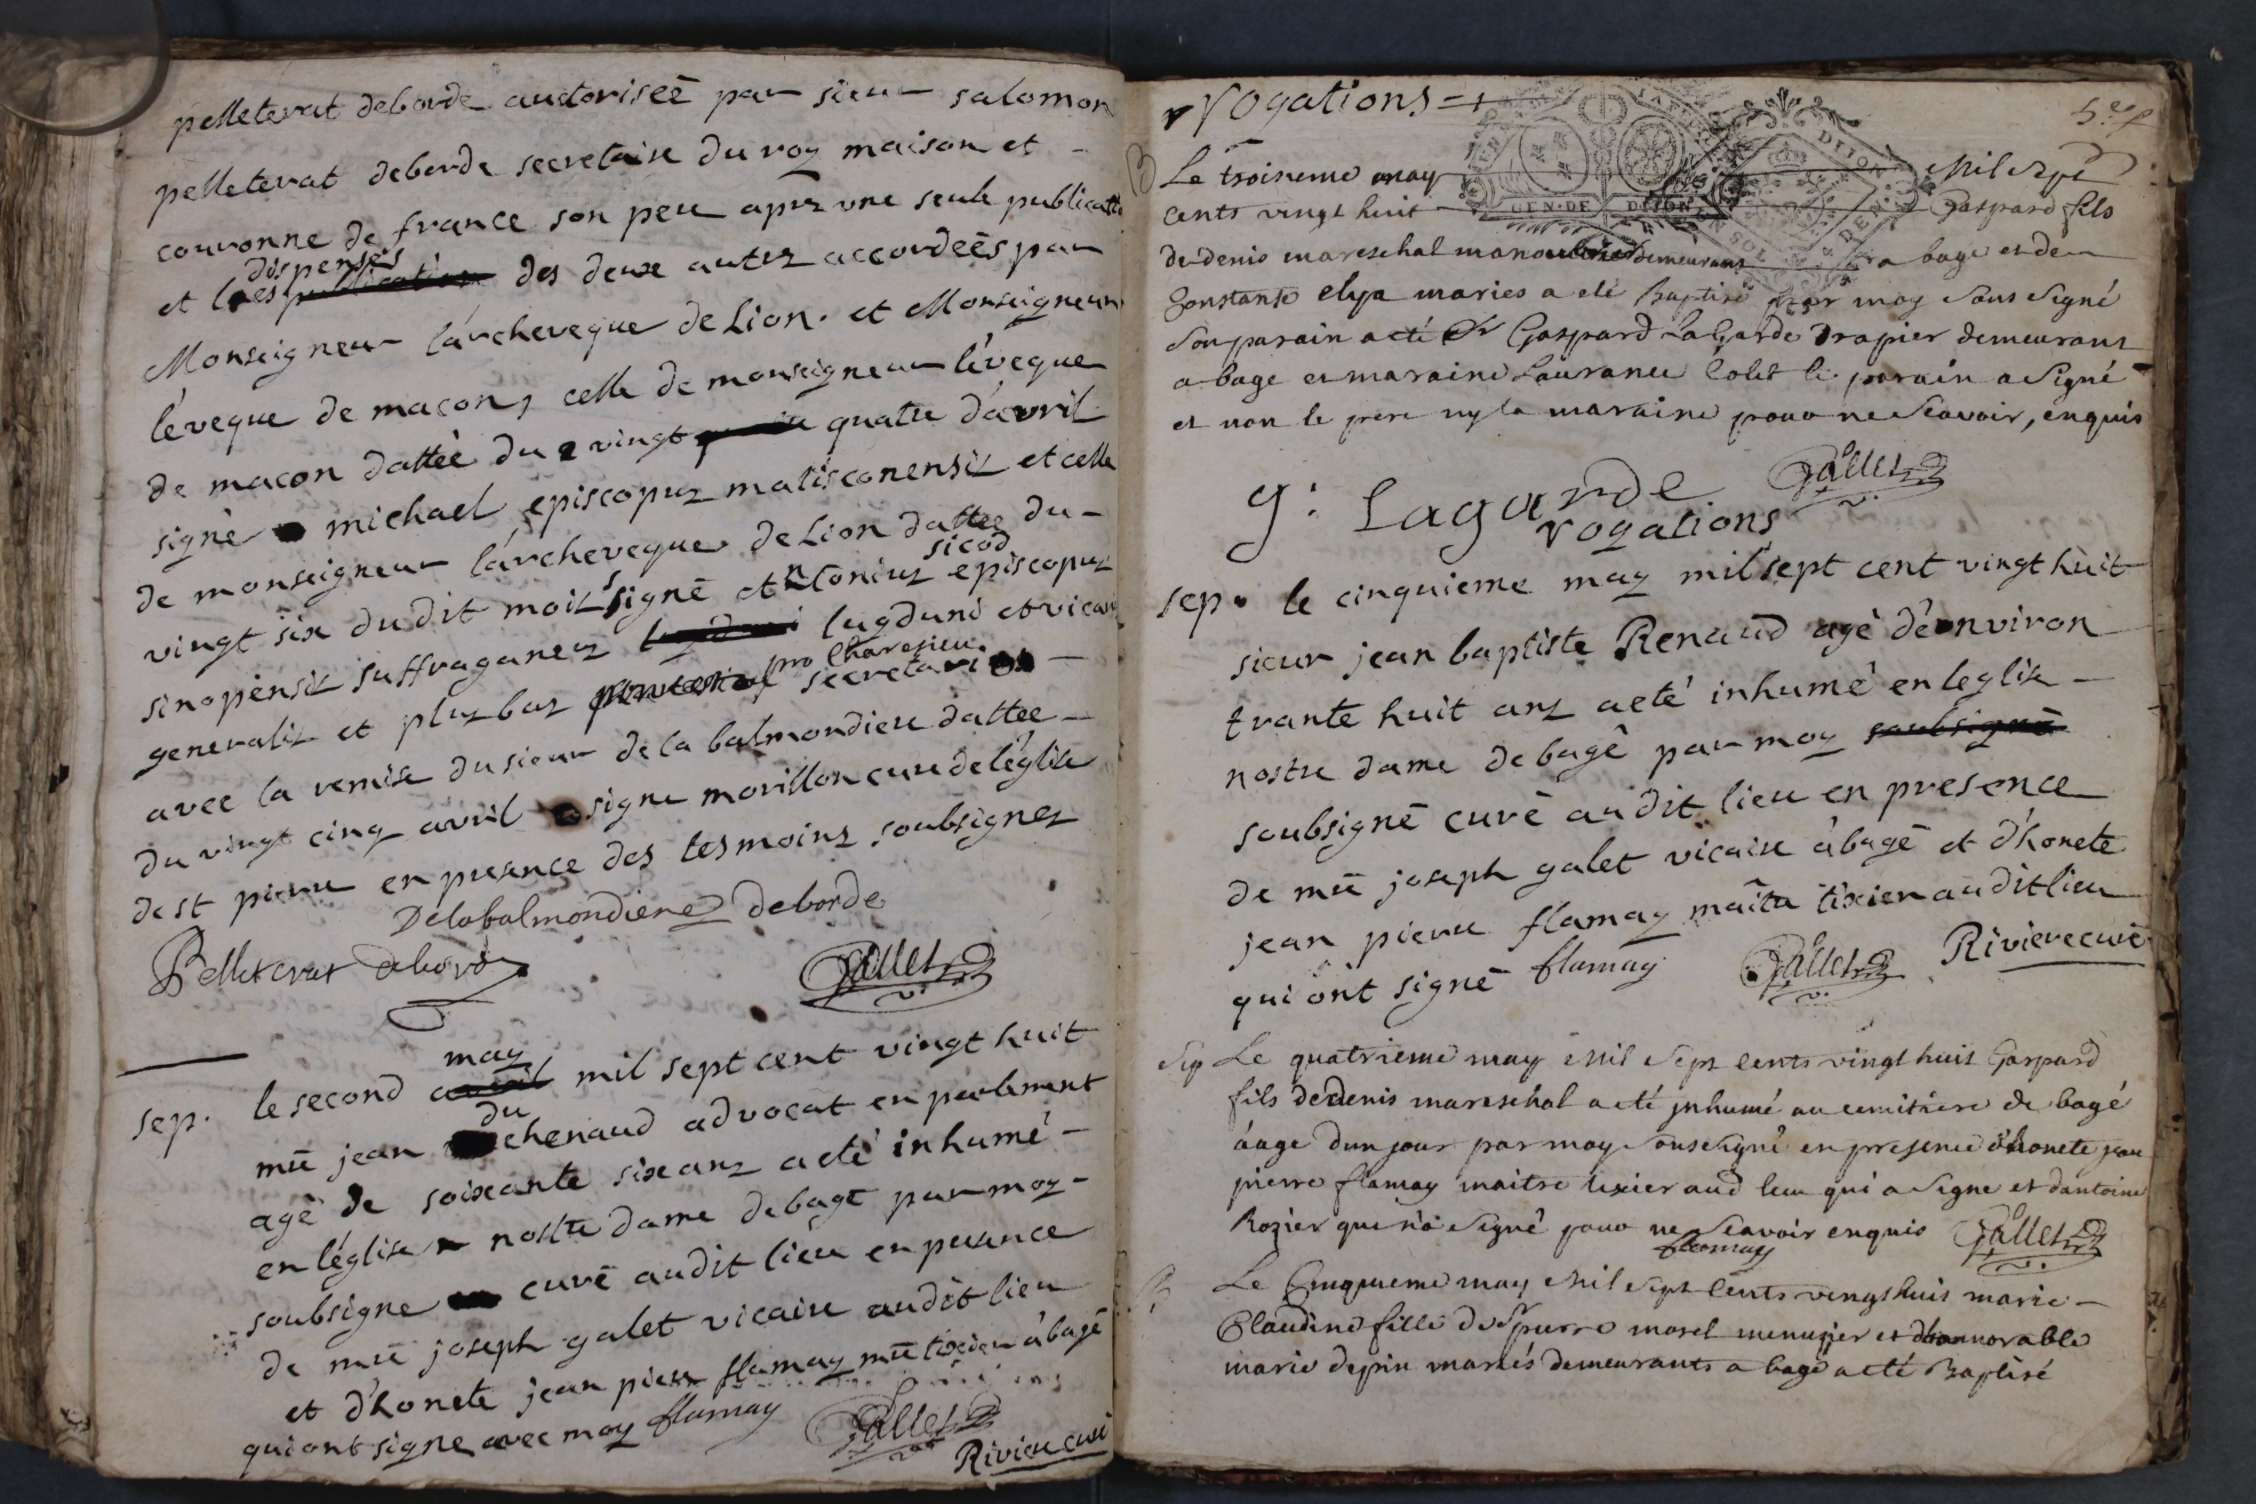 pelleterat deborde auctoriseē par sieur salomon
pelleterat deborde secretaire du roy maison et -
couronne de france son pere aprez une seule publicatio
et les dispenses des deux autrez accordeēs par
Monseigneur l'archeveque de Lion. et Monseigneur
l'éveque de macon, celle de monseigneur l'éveque
de macon dattéé du vingt quatre d'avril
signé michael episcopuz matisconensiz et celle
de monseigneur l'archeveque de Lion dattee du -
vingt six du dit moiz signē antoniuz sicod episcopuz
sinopensiz suffraganeuz lugduni et vicari
generaliz et pluz baz pro Charezieu secretari
avec la remise du sieur de la balmondiere dattee -
du vingt cinq avril signe morillon cure de l'église
de st pierre en presence des tesmoinz soubsignez
Delabalmondiere deborde
Pelleterat deborde Gallet
sep. le second may mil sept cent vingt huit
mrē jean duchenaud advocat en parlement
agé de soixante six anz a eté inhumé -
en l'église nostre dame de bagé par moy -
soubsigne curē audit lieu en presence
de mrē joseph galet vicaire audit lieu
et d'honete jean pierre flamay mrē tixier à bagé
qui ont signe avec moy flamay Gallet
Riviere curé
vogations =+
5.e f
B Le troisieme may mil sept
cents vingt huit Gaspard fils
de denis mareschal manouvrier demeurant a bagé et de
Constance elya maries a eté Baptisé par moy sous signé
Son parain a eté Sr Gaspard LaGarde Drapier demeurant
a bage et maraine Laurance Colet le parain a Signé
et non le pere ny la maraine pour ne Scavoir, enquis
g: Lagarde Gallet
vogations
sep. le cinquieme may mil sept cent vingt huit
sieur jean baptiste Renaud agé d'environ
trante huit anz a eté inhumé en leglise -
nostre dame de bagé par moy
soubsignē curē audit lieu en presence
de mrē joseph galet vicaire à bagē et d'honete
jean pierre flamay maitre tixier audit lieu
qui ont signē flamay Gallet Riviere curē
Sep Le quatrieme may Mil Sept Cents vingt huit Gaspard
fils de denis mareschal a eté jnhumé au cemitiere de bagé
áage dun jour par moy Sousigné en presence d'honete jean
pierre flamay maitre tixier aud lieu qui a Signe et dantoine
Rozier qui n'a Signé pour ne Scavoir enquis Gallet
flamay
B Le Cinquieme may Mil Sept Cents vingt huit marie -
Claudine fille de Sr pierre morel menuzier et dhonnorable
marie depin mariés demeurants a bagé a eté Baptisé